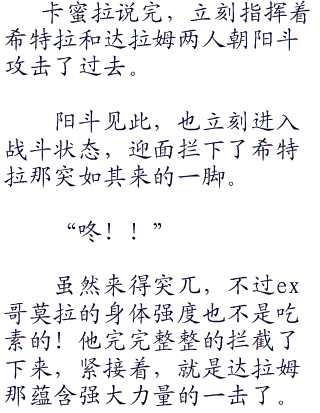 卡蜜拉说完，立刻指挥着
希特拉和达拉姆两人朝阳斗
攻击了过去。
阳斗见此，也立刻进入
战斗状态，迎面拦下了希特
拉那突如其来的一脚。
“咚！！”
虽然来得突兀，不过ex
哥莫拉的身体强度也不是吃
素的！他完完整整的拦截了
下来，紧接着，就是达拉姆
那蕴含强大力量的一击了。